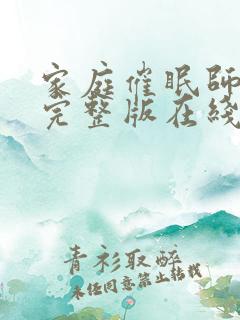 家庭催眠师
完整版在线
青衫取醉
未经同意禁止转载